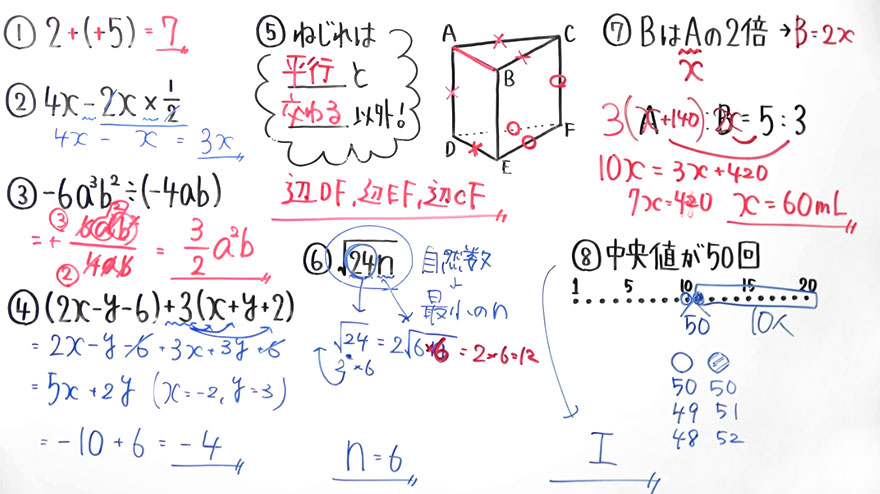 ① 2+(+5)=7
② 4x-2x×1/2
4x - x = 3x
③ -6a³b²÷(-4ab)
= 3/2 a²b
④ (2x-y-6)+3(x+y+2)
= 2x-y-6+3x+3y+6
= 5x+2y (x=-2, y=3)
= -10+6 = -4
⑤ ねじれは
平行と
交わる以外!
A
C
B
D
F
E
辺DF, 辺EF, 辺CF
⑥ √24n
自然数
↓
最小のn
√24 = 2√6 ×6 = 2×6=12
2²×6
n=6
⑦ BはAの2倍 → B=2x
x
3(x+140):2x=5:3
10x = 3x+420
7x=420 x=60mL
⑧ 中央値が50回
1 5 10 15 20
50 10人
50 50
49 51
48 52
I